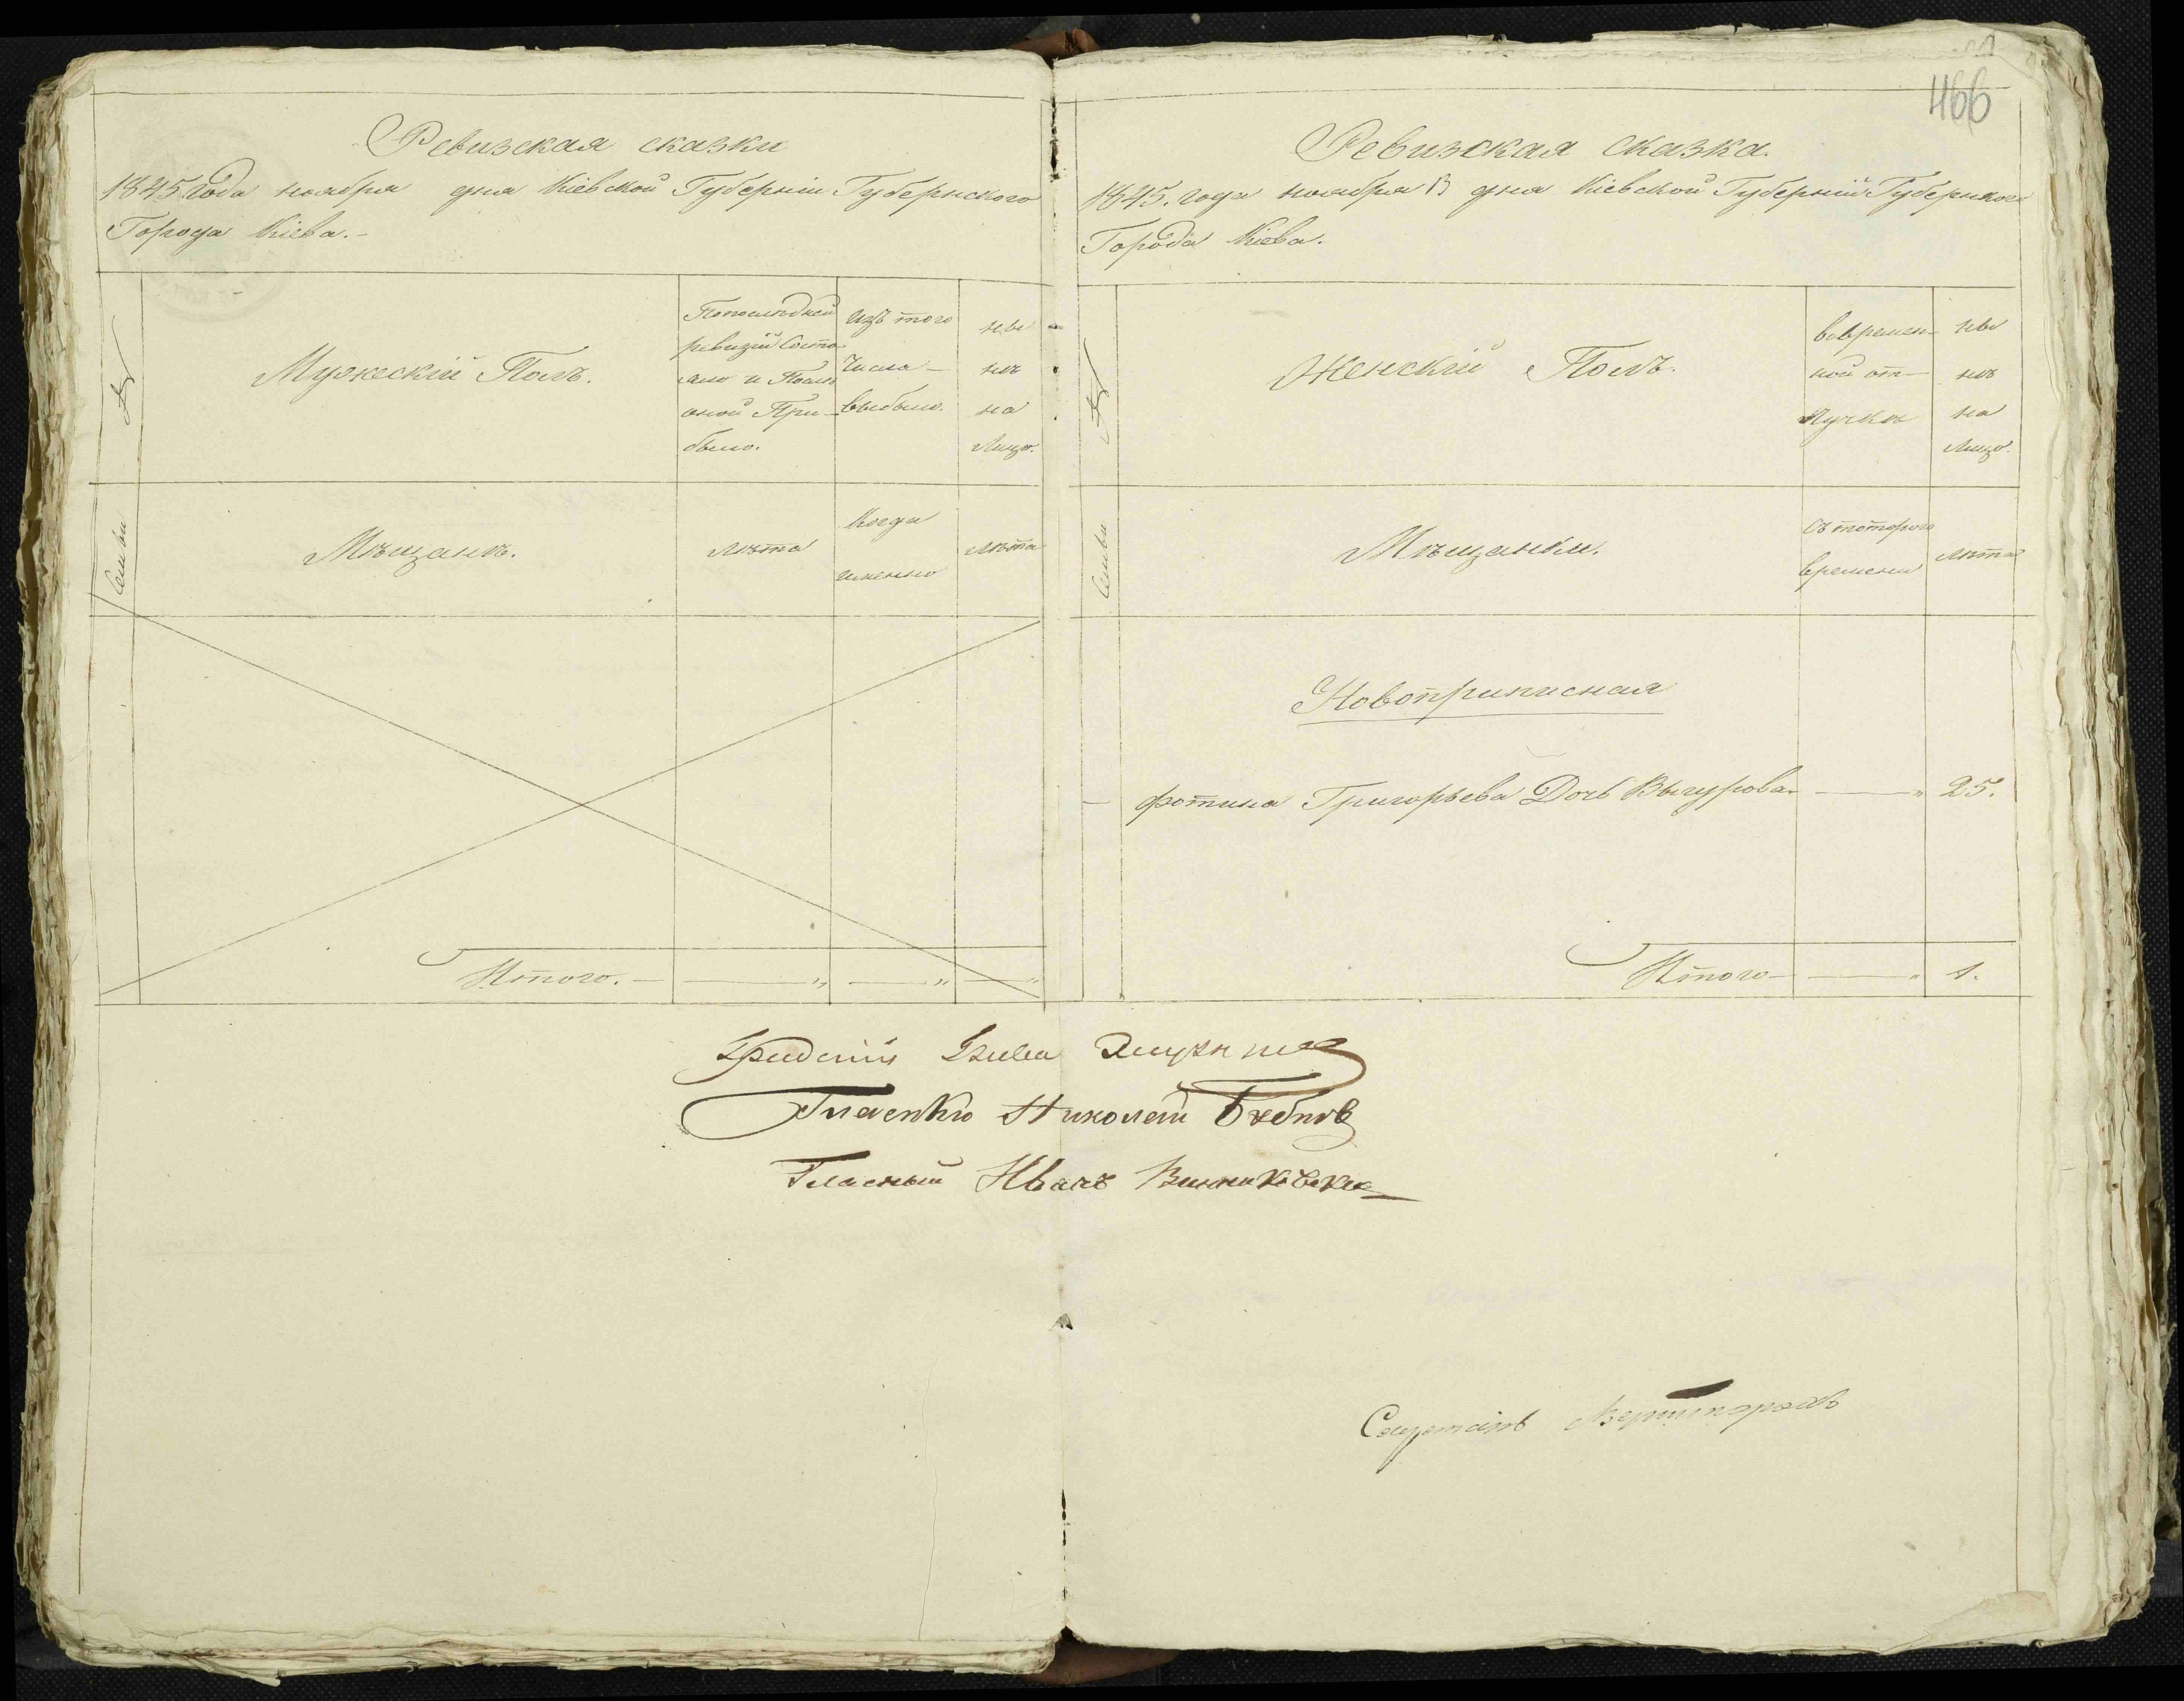 466
Ревизская сказки
1845 года ноября дня Кіевской Губерніи Губернского
Города Кіева.-
№ Семьи
Мужескій Полъ.
Попослѣдней
ревизіи Состо
яло и Послѣ
оной При-
было.
Изъ того
Числа-
выбыло.
ны
нѣ
на
Лицо.
Мѣщанъ.
Лѣта
Когда
именно
Лѣта
Итого. -
Ревизская сказка.
1845. года ноября 13 дня Кіевской Губерніи Губернского
Города Кіева.
№ Семьи
Женскій Полъ.
вовремен-
ной от-
лучкѣ
ны
нѣ
на
Лицо.
Мѣщанки.
Съ которого
времени
Лѣта
Новоприписная
Фотина Григорьева Дочь Выгурова- 25.
Итого- 1.
Николай
Гласный Иванъ
Секретарь